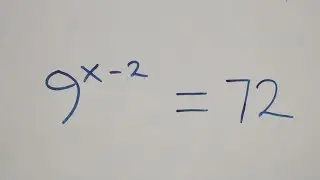 9^{x-2} = 72